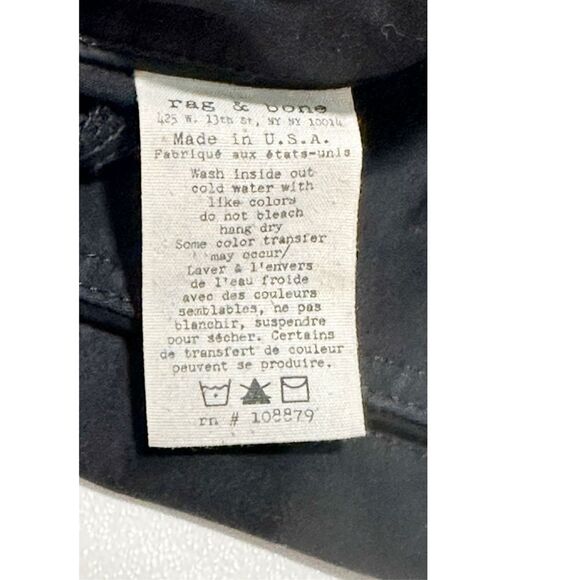 rag & bone
425 W. 13th St, NY NY 10014
Made in U.S.A.
Fabriqué aux états-unis
Wash inside out
cold water with
like colors
do not bleach
hang dry
Some color transfer
may occur/
Laver à l'envers
de l'eau froide
avec des couleurs
semblables, ne pas
blanchir, suspendre
pour sécher. Certains
de transfert de couleur
peuvent se produire.
rn # 108879